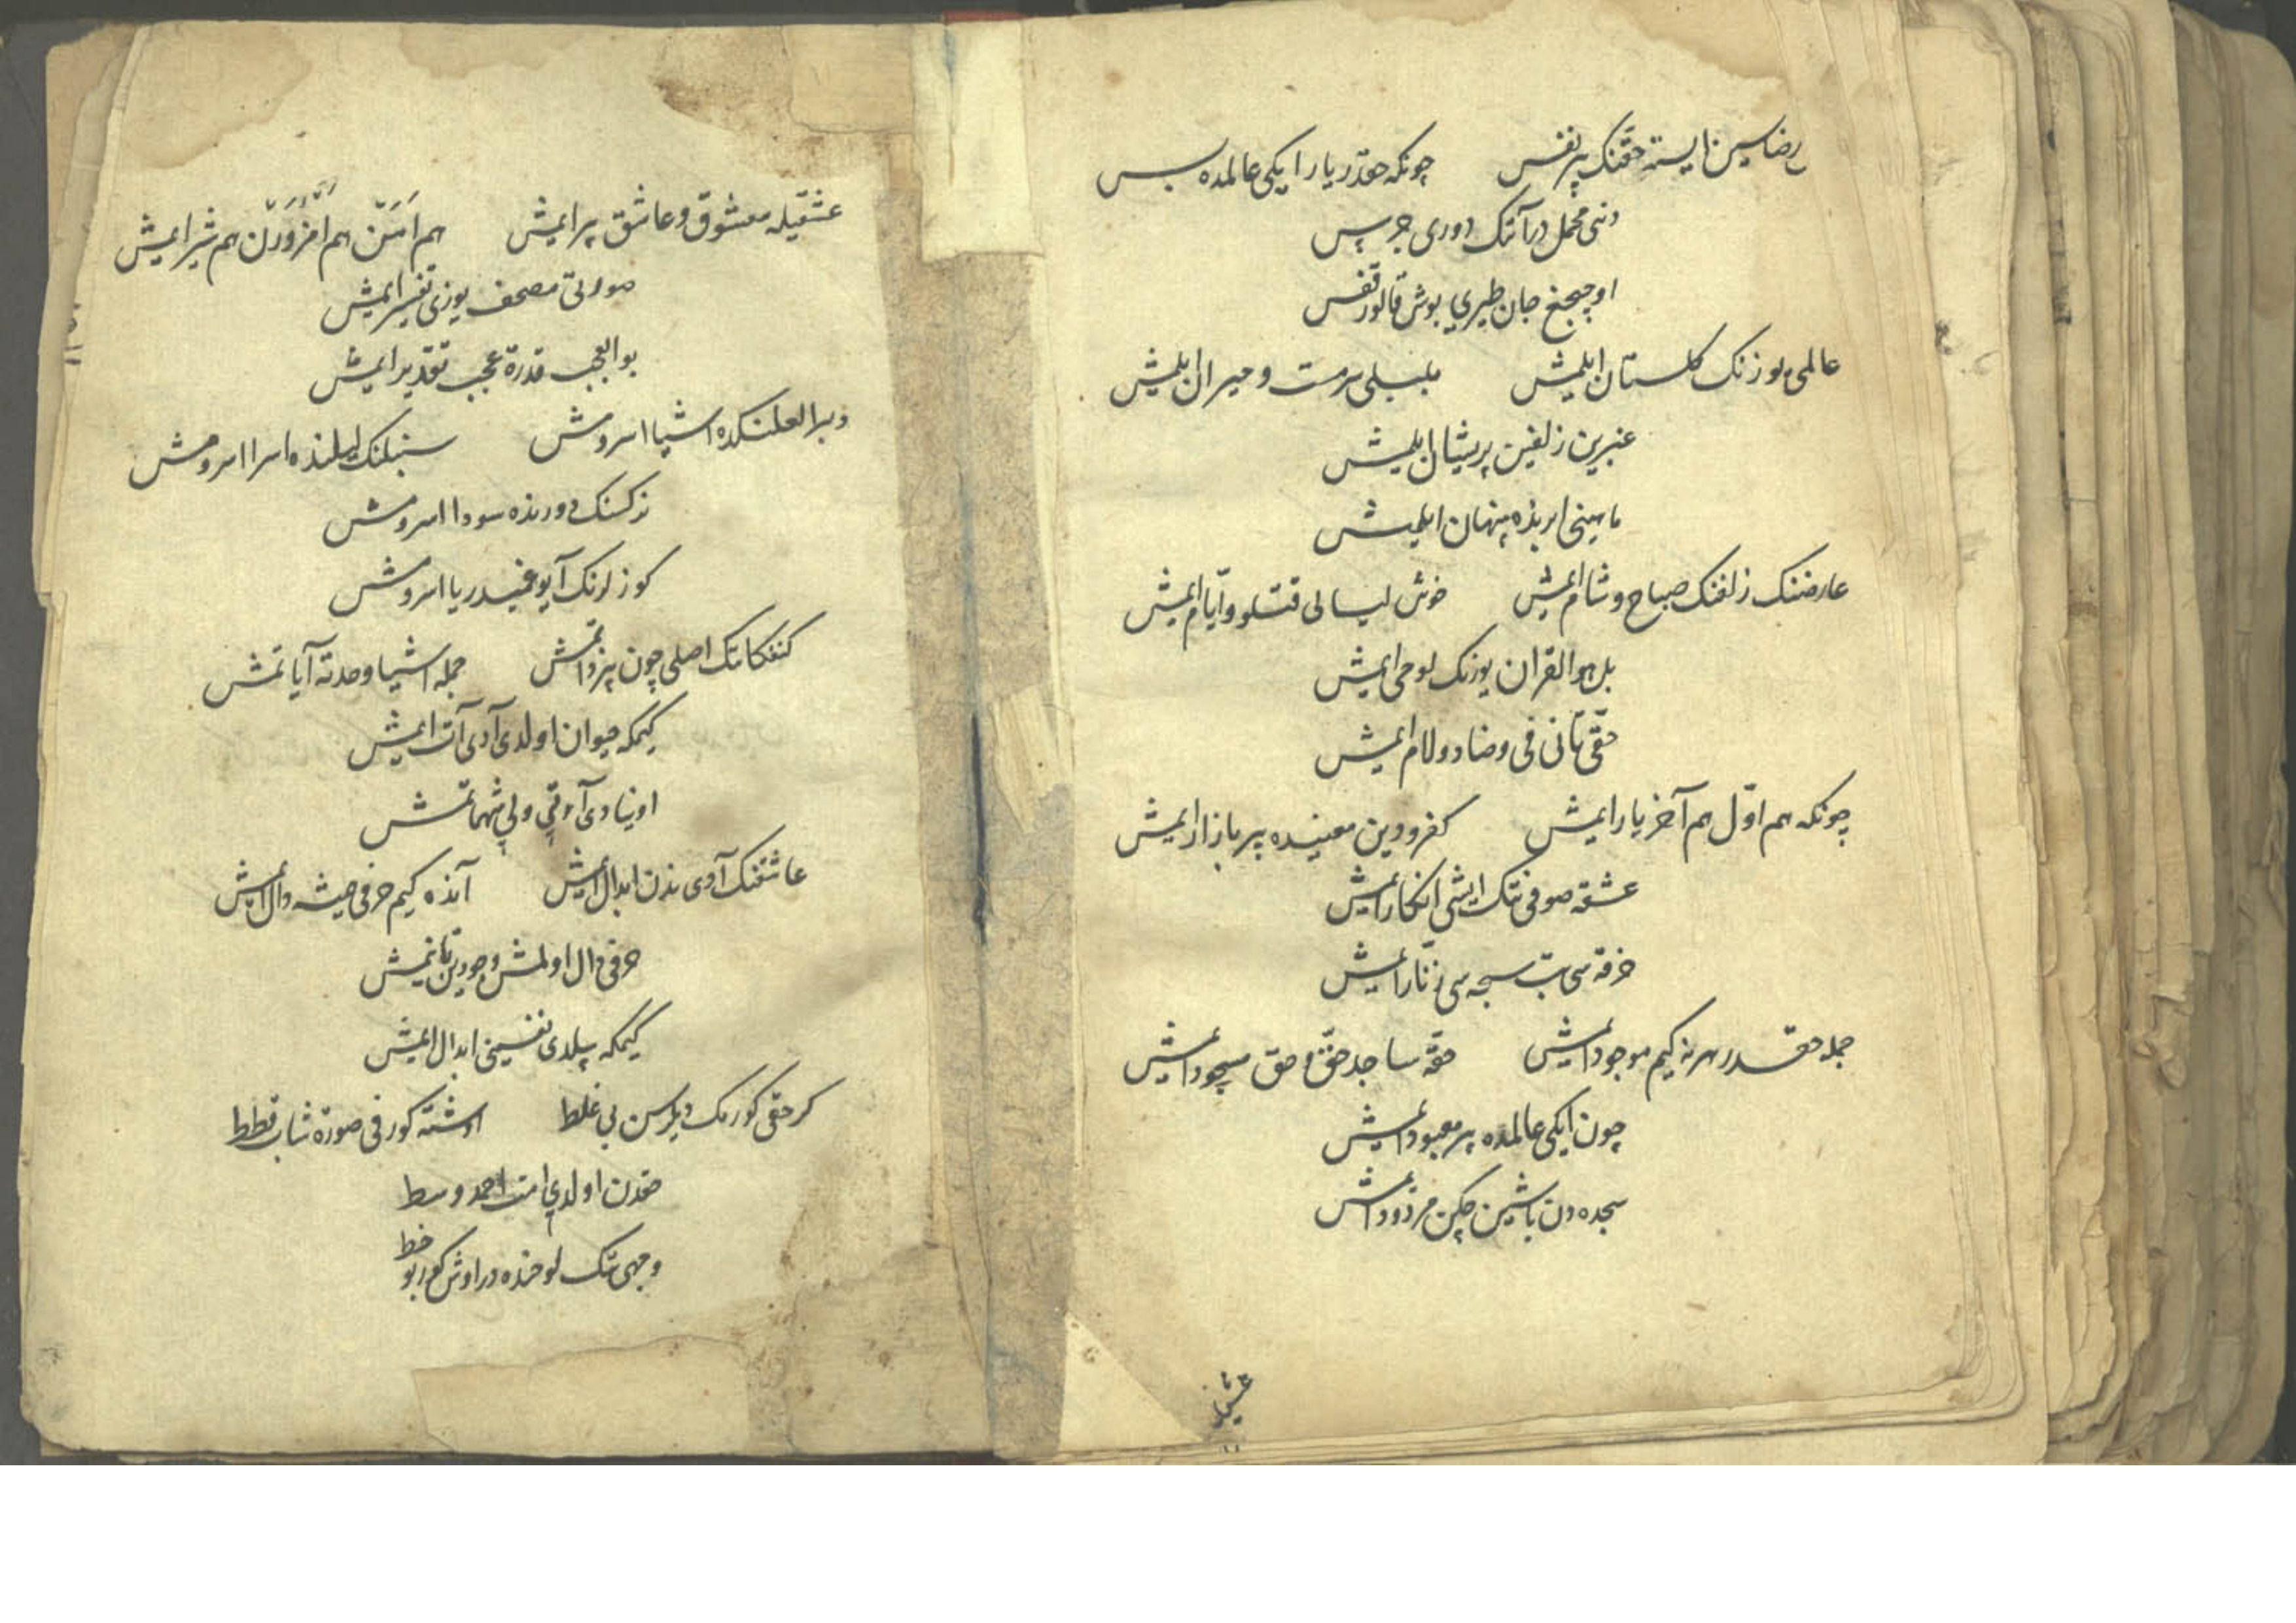 رضاسین ایسته حقنک بیر نفس چونکه حقدر یار ایکی عالمده بس
دنیی محمل درآنک دوری جرس
اوچیجغ جان طیری بوش قالور قفس
عالمی یوزنک کلستان ایلمیش بلبلی سرمست و حیران ایلمیش
عنبرین زلفین پریشان ایلمیش
ماهینی ابریده پنهان ایلمیش
عارضنک زلفنک صباح و شام ایمیش خوش لیالی قتلو و ایّام ایمیش
بل هو القران یوزنک لوحی ایمیش
حقّی تانی فی و ضاد و لام ایمیش
چونکه هم اوّل هم آخر یار ایمیش کفر و دین معنیده بیر بازار ایمیش
عشقه صوفی نتک ایشی انکار ایمیش
خرقه سی بت سبحه سی زنّار ایمیش
جمله حقدر هر نه کیم موجود ایمیش حقّه ساجد حقّ و حق مسجود ایمیش
چون ایکی عالمده بیر معبود ایمیش
سجده دن باشین چکن مردود ایمش
عشقیله
عشقیله معشوق و عاشق بیر ایمیش هم هم هم شیر ایمیش
صورتی مصحف یوزی تفسیر ایمیش
بو العجب قدرة عجب تقدیر ایمش
اشیا اسرومش سنبلنک اسرا اسرومش
نرکسنک دورنده سودا اسرومش
کوزلرنک دریا اسرومش
کنفکاننک اصلی چون بیر ذاتمش جمله اشیا وحدته آیاتمش
کیمکه حیوان اولدی آدی آت ایمیش
اوینادی ولی شهماتمش
عاشقنک آدی ندن ابدال ایمیش آنده کیم حرفی دال ایمش
حرفی دال اولمش وجودین تانیمش
کیمکه بیلدی نفسینی ابدال ایمیش
کر حقی کورمک دیلرسن بی غلط اوشته کور فی صورة شاب قطط
حقدن اولدی امت احمد وسط
وجهی نتک لوحنده در اوش کور بو خط